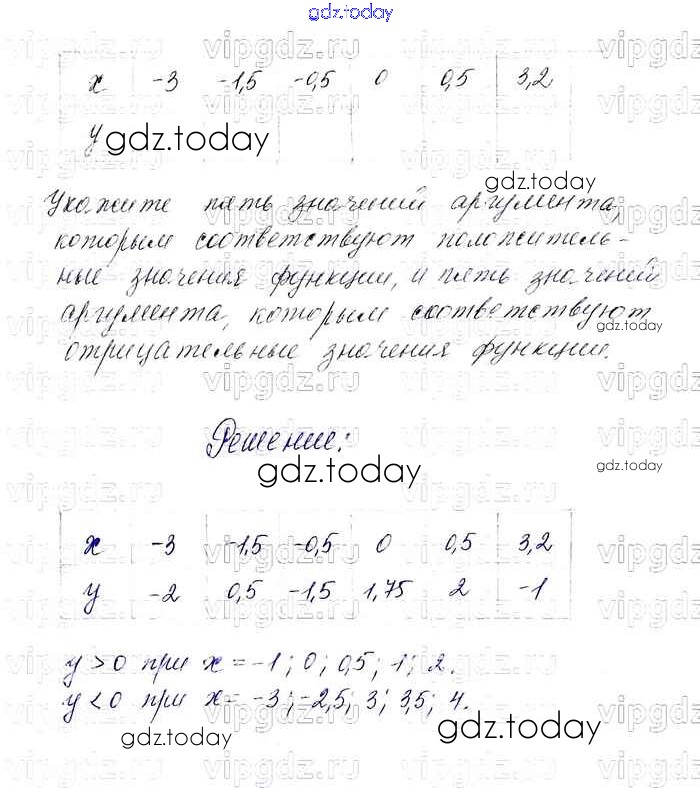 gdz.today
x -3 -1,5 -0,5 0 0,5 3,2
y
gdz.today
Укажите пять значений аргумента,
gdz.today
которым соответствуют положитель-
ные значения функции, и пять значений
аргумента, которым соответствуют
gdz.today
отрицательные значения функции.
vipgdz.ru
Решение:
gdz.today
gdz.today
x -3 -1,5 -0,5 0 0,5 3,2
y -2 0,5 -1,5 1,75 2 -1
y > 0 при x = -1; 0; 0,5; 1; 2.
y < 0 при x = -3; -2,5; 3; 3,5; 4.
gdz.today
gdz.today